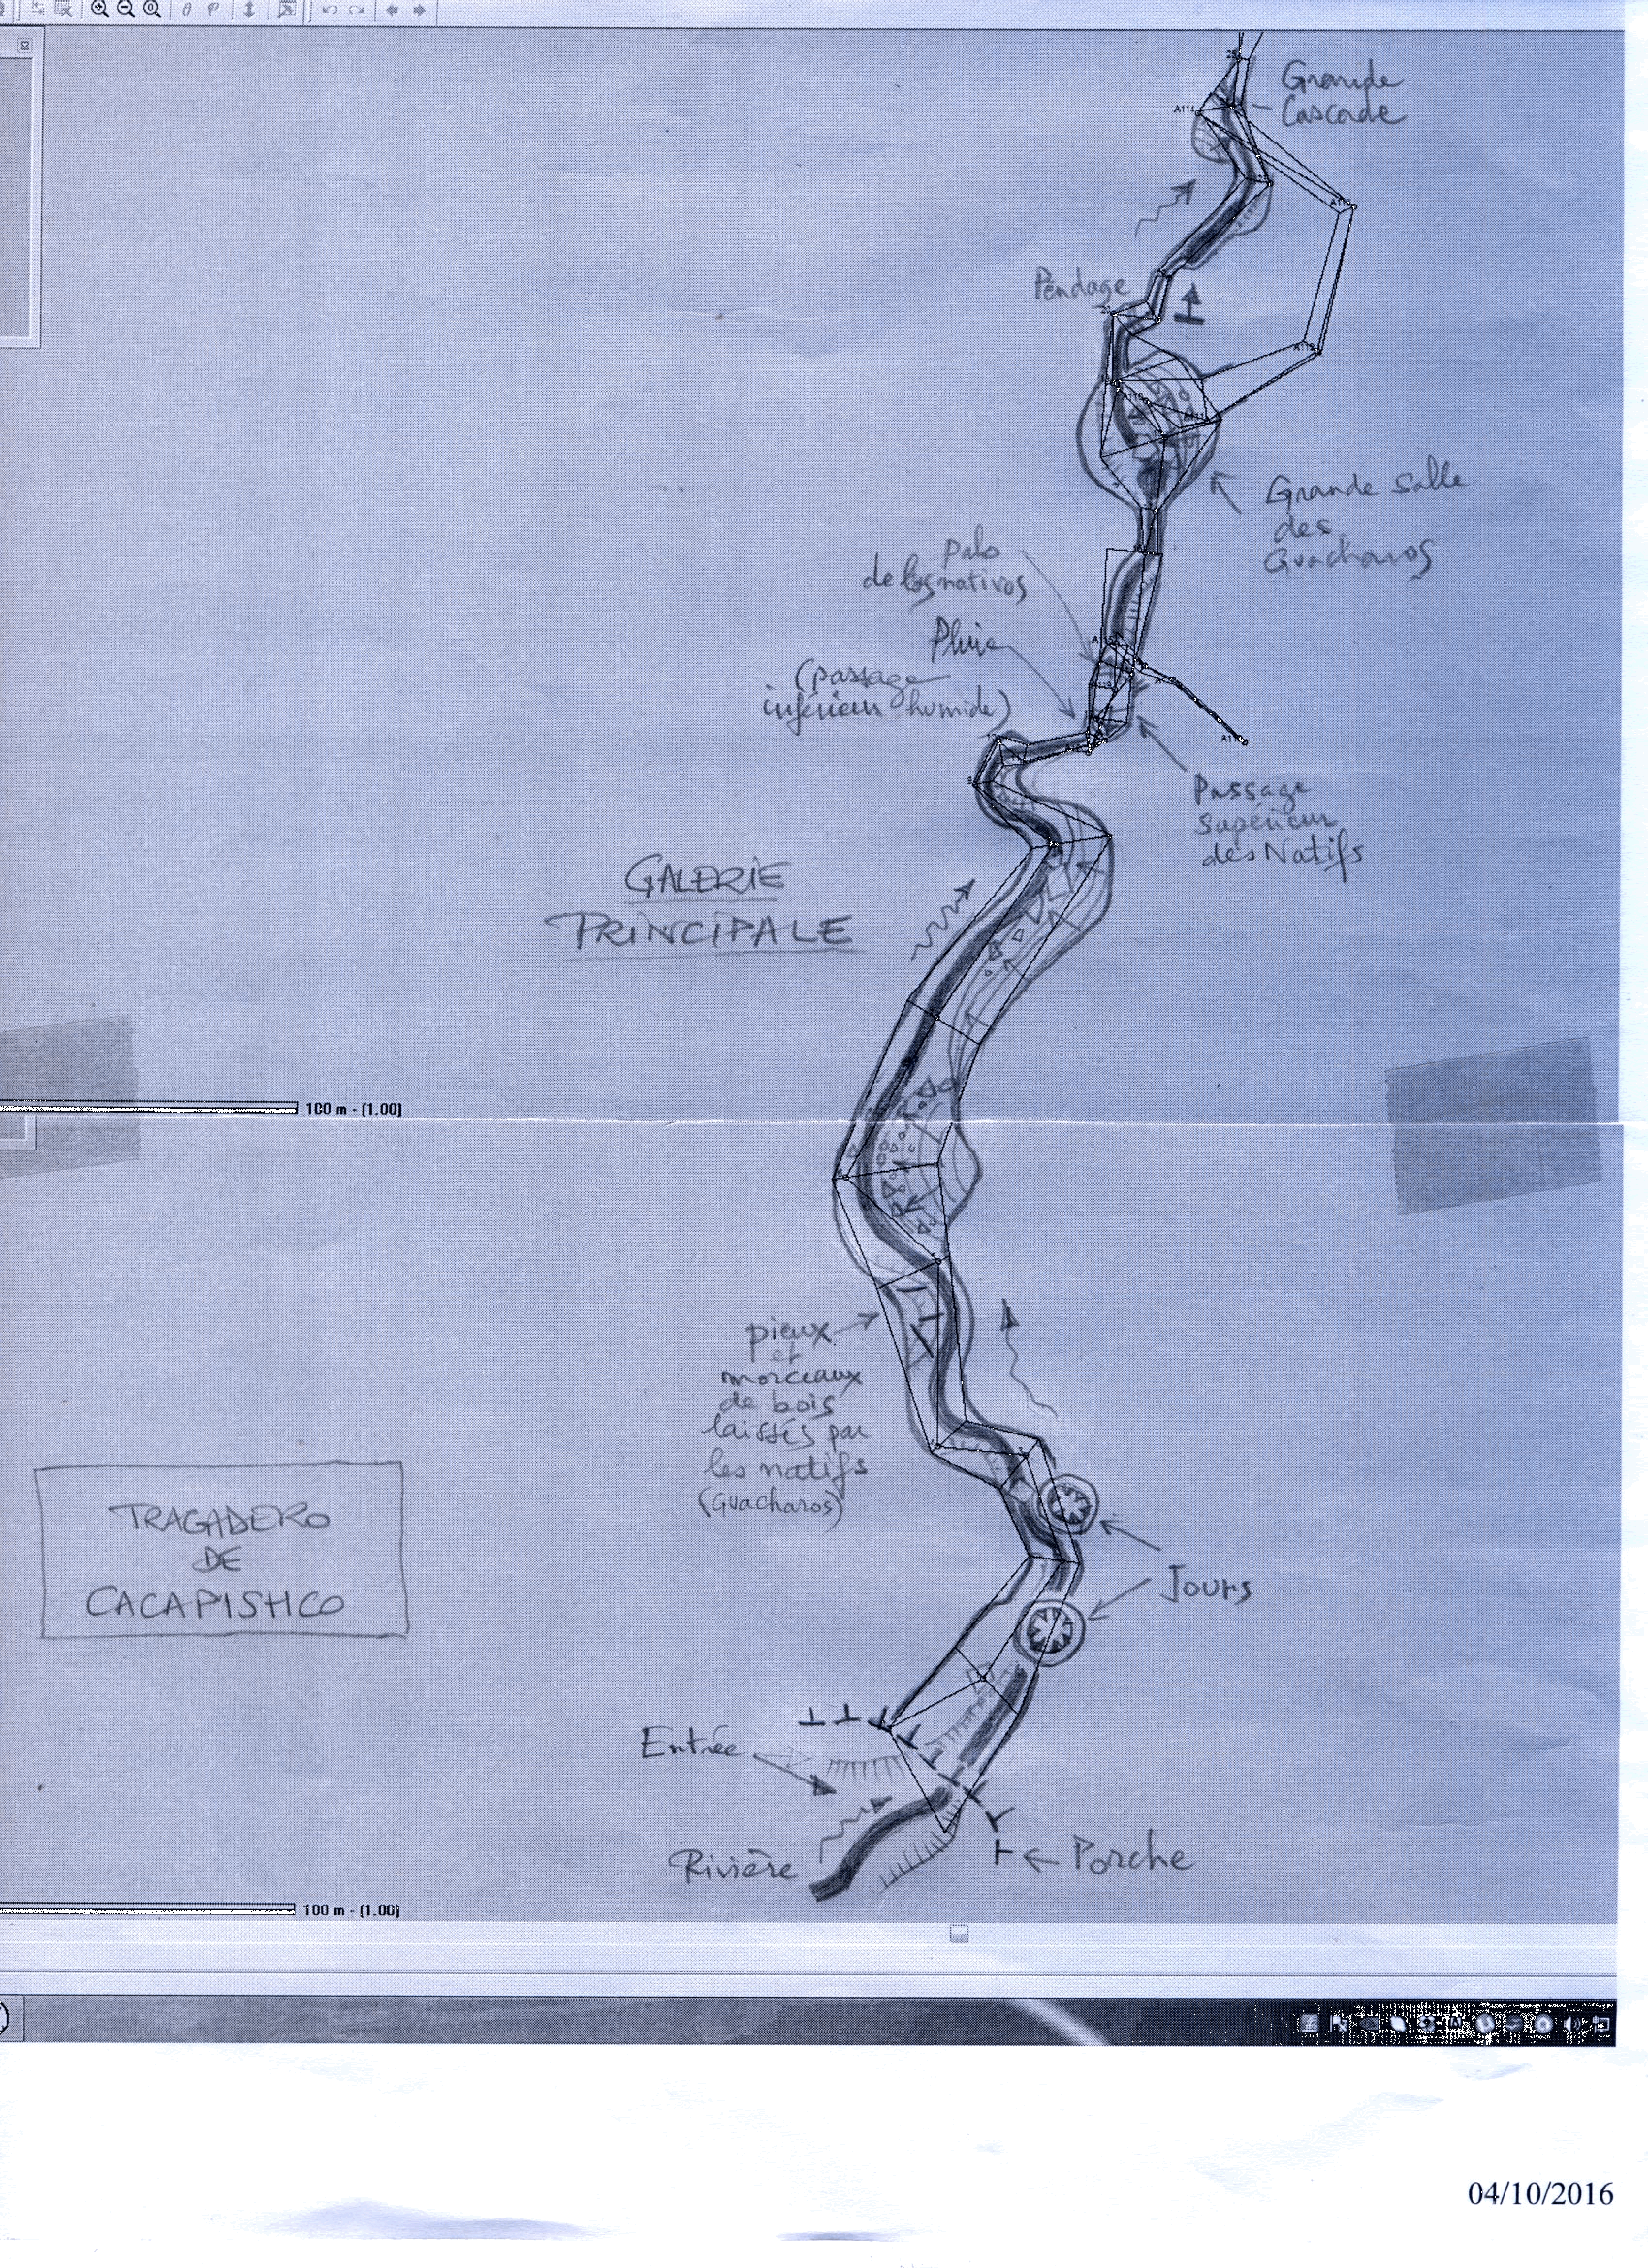 Grande
Cascade
Pendage
Grande Salle
des
Guacharos
palo
de los nativos
Pluie
(passage
inférieur humide)
Passage
supérieur
des Natifs
GALERIE
PRINCIPALE
100 m - (1.00)
pieux
et
morceaux
de bois
laissés par
les natifs
(Guacharos)
TRAGADERO
DE
CACAPISHCO
Jours
Entrée
Rivière
Porche
100 m - (1.00)
04/10/2016